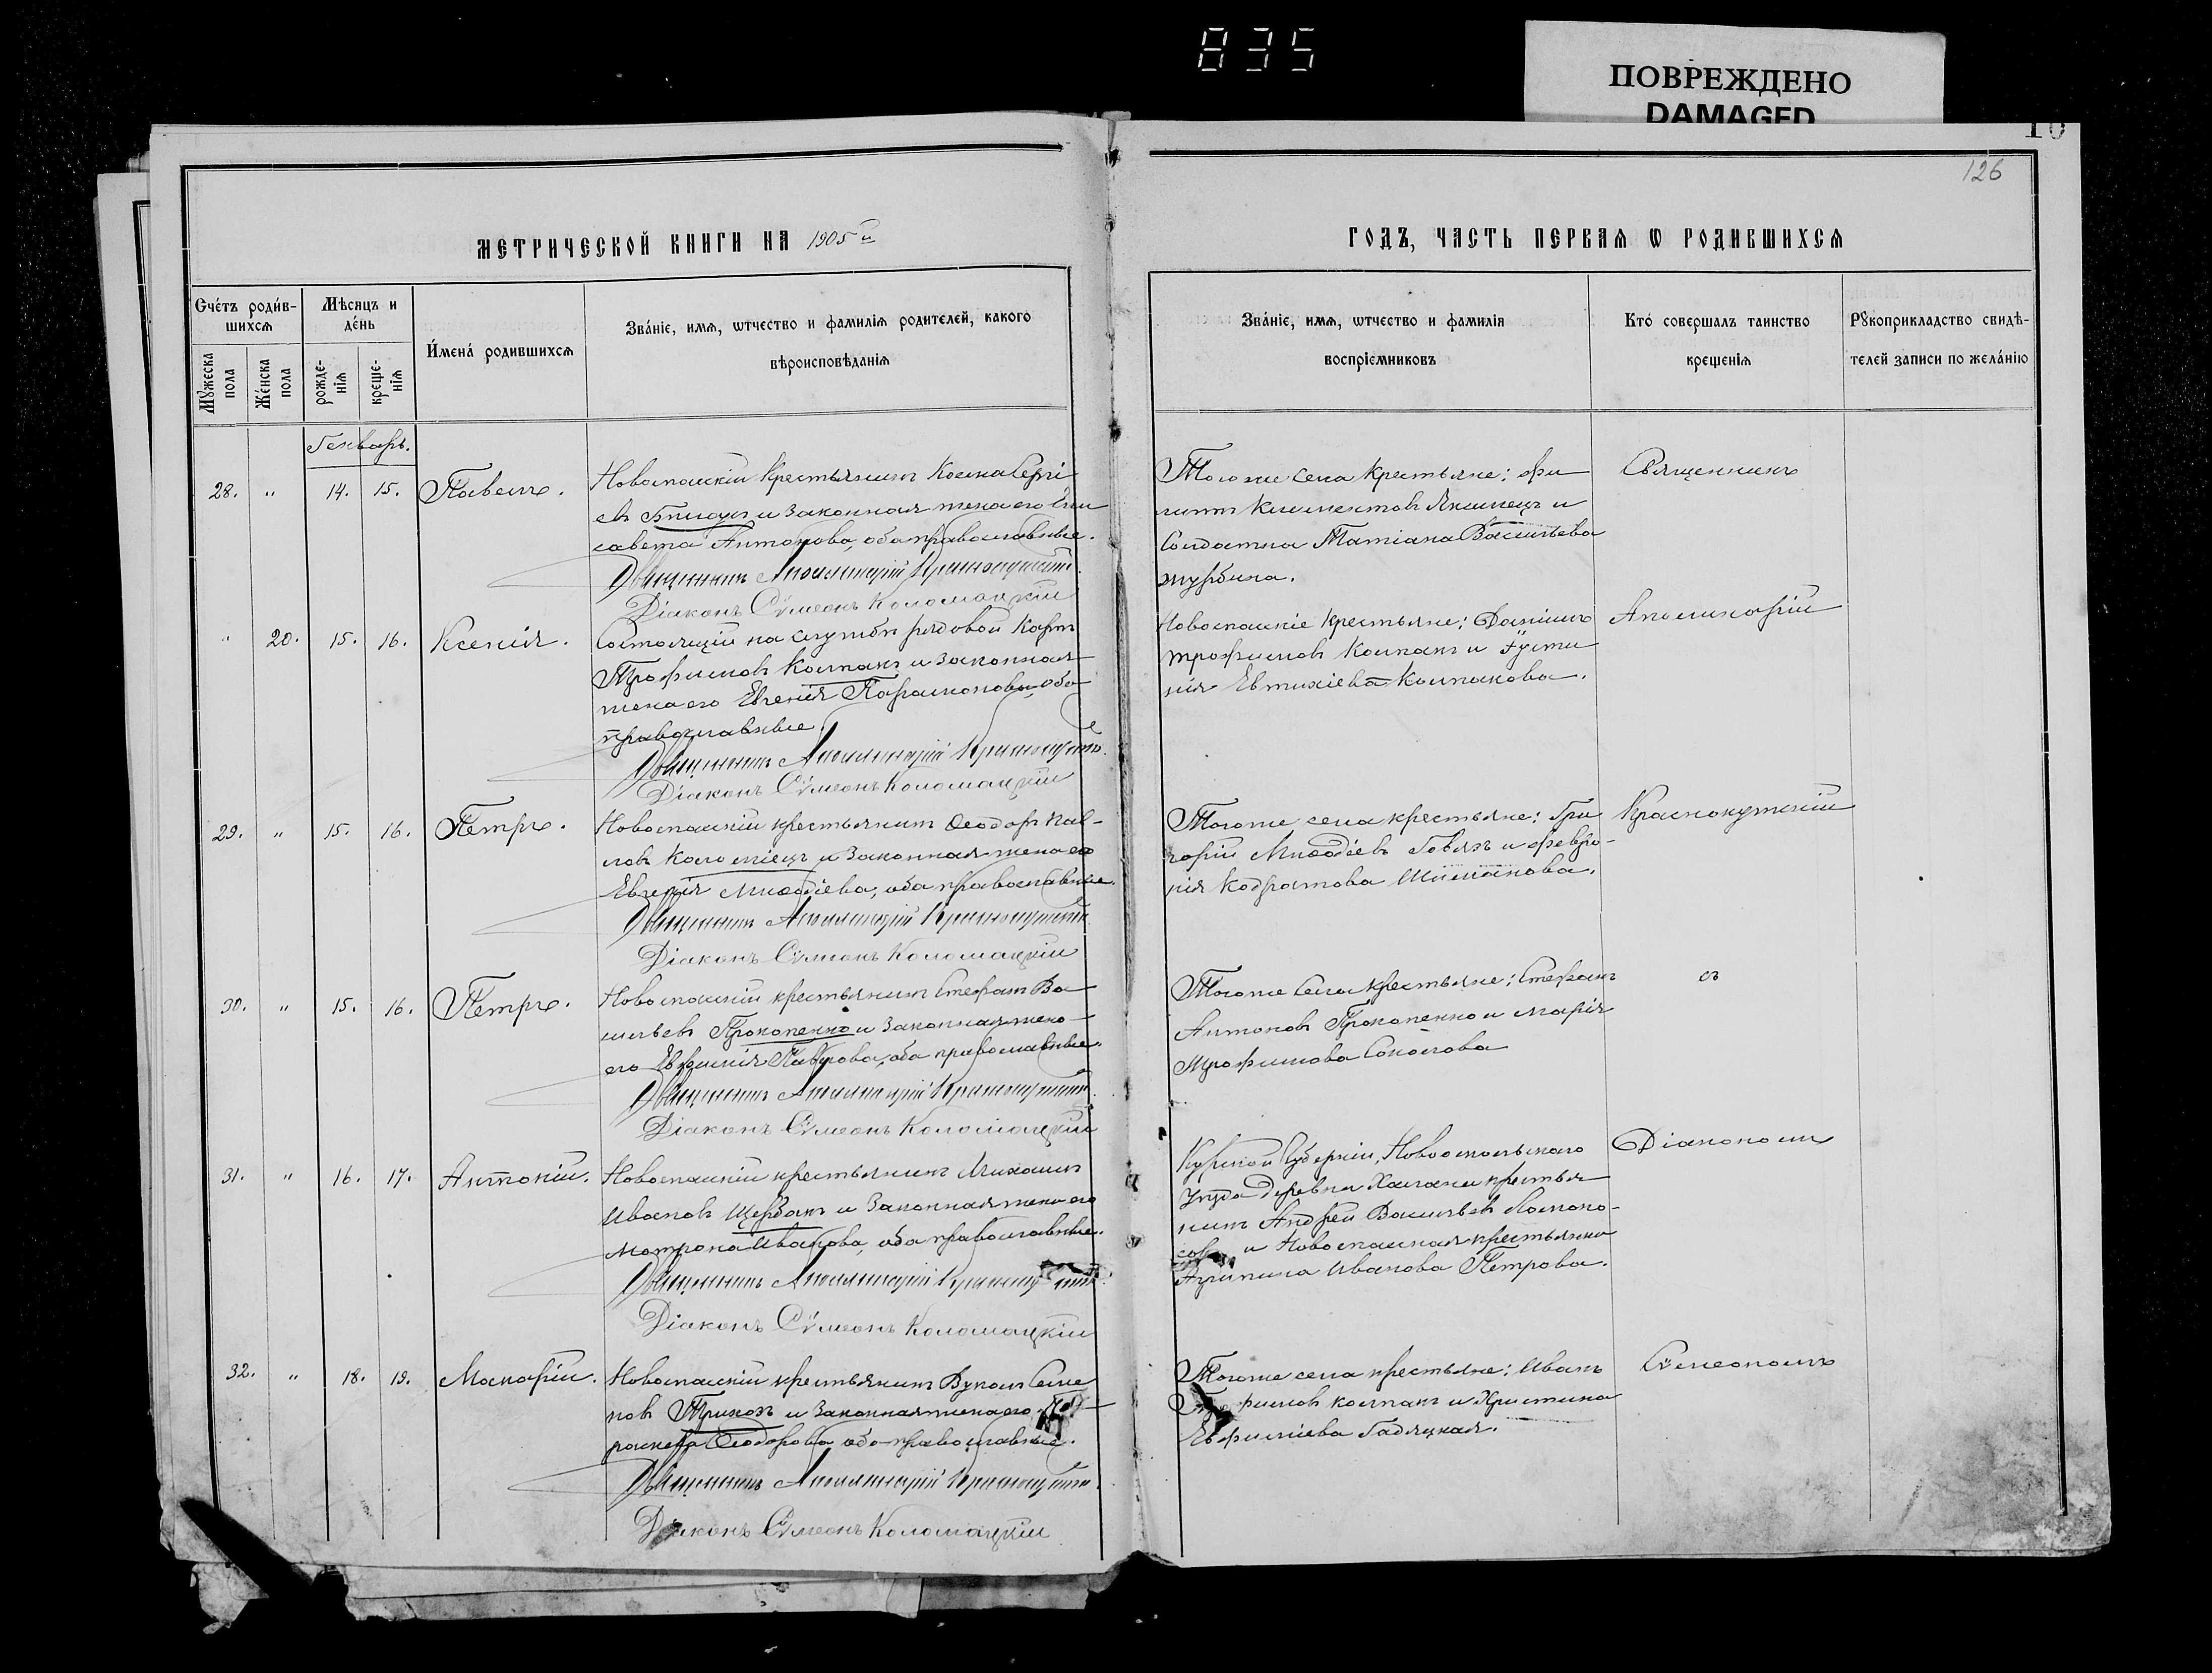 835
ПОВРЕЖДЕНО
DAMAGED
10
126
МЕТРИЧЕСКОЙ КНИГИ НА 1905й
ГОДЪ, ЧАСТЬ ПЕРВАѦ Ѡ РОДИВШИХСѦ
Счéтъ роди́в-
шихсѧ
Мѣ́сяцъ и
де́нь
Мꙋ́жеска
пола
Же́нска
пола
рожде-
нїѧ
креще-
нїѧ
И́мена́ родившихсѧ
Зва́нїе, имѧ, ѡтчество и фамилїѧ родителей, какого
вѣроисповѣданїѧ
Зва́нїе, имѧ, ѡтчество и фамилїѧ
воспрїемниковъ
Кто́ совершалъ таинство
крещенїѧ
Рꙋкоприкладство свидѣ-
телей записи по жела́нїю
Генварь.
28. " 14. 15. Павелъ.
Новоспаскій крестьянинъ Косма Сергі
евъ и законная жена его Ели
савета Антонова, оба православные.
Священникъ Аполлинарій Краснокутскій
Діаконъ Сѵмеонъ Коломацкій
Тогоже села крестьяне: Фи
липъ Климентовъ и
Солдатка Татіана Васильева
Журбина.
Священникъ
" 20. 15. 16. Ксенія.
Состоящій на службѣ рядовой Карпъ
Трофимовъ Колпакъ и законная
жена его Евгенія Парамонова, оба
православные.
Священникъ Аполлинарій Краснокутскій
Діаконъ Сѵмеонъ Коломацкій
Новоспаскіе крестьяне: Даніилъ
Трофимовъ Колпакъ и Іусти
нія Евтихіева Колпакова.
Аполинарій
29. " 15. 16. Петръ.
Новоспаскій крестьянинъ Ѳеодоръ Пав-
ловъ Коломіецъ и законная жена его
Евгенія Меѳодіева, оба православные.
Священникъ Аполлинарій Краснокутскій
Діаконъ Сѵмеонъ Коломацкій
Тогоже села крестьяне: Гри
горій Меѳодіевъ и Февро-
нія Кодратова
Краснокутскій
30. " 15. 16. Петръ.
Новоспаскій крестьянинъ Стефанъ Ва
сильевъ Прокопенко и законная жена
его Евфимія оба православные.
Священникъ Аполлинарій Краснокутскій
Діаконъ Сѵмеонъ Коломацкій
Тогоже села крестьяне: Стефанъ
Антоновъ Прокопенко и Марія
Трофимова Соколова
съ
31. " 16. 17. Антоній.
Новоспаскій крестьянинъ Михаилъ
Ивановъ Щербакъ и законная жена его
Матрона Иванова, оба православные.
Священникъ Аполлинарій
Діаконъ Сѵмеонъ Коломацкій
Курской Губерніи, Новооскольскаго
уѣзда деревни Халани крестья
нинъ Андрей Васильевъ Ломоно-
совъ и Новоспаская крестьянка
Агрипина Иванова Петрова.
Діакономъ
32. " 18. 19. Макарій.
Новоспаскій крестьянинъ Вуколъ Семе
новъ и законная жена его Па
раскева Ѳеодорова оба православные.
Священникъ Аполлинарій Краснокутскій
Діаконъ Сѵмеонъ Коломацкій
Тогоже села крестьяне: Иванъ
Трофимовъ Колпакъ и Христина
Евфиміева Гадяцкая.
Сѵмеономъ